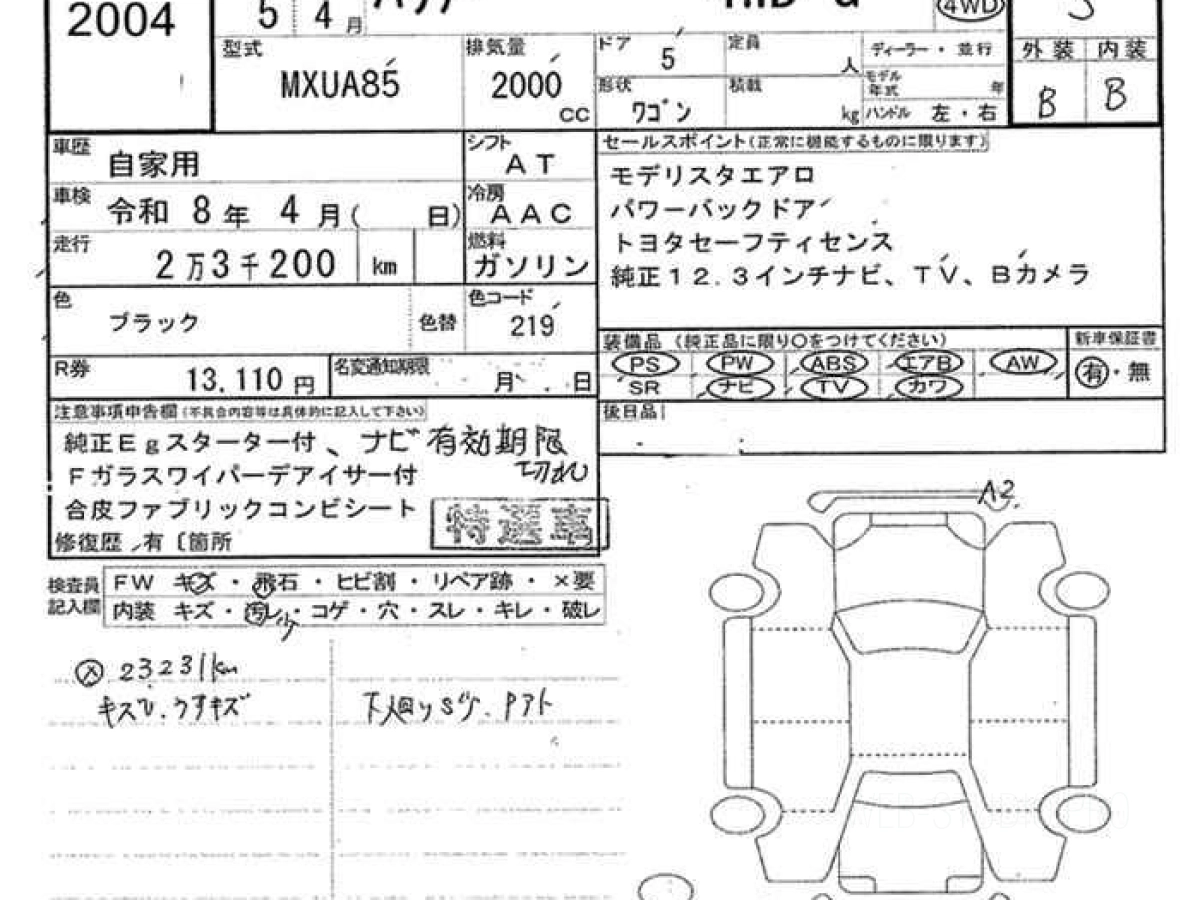 2004
5 4月
4WD
型式
MXUA85
排気量
2000
cc
ドア
5
定員
人
ディーラー・並行
外装 内装
B B
形状
ワゴン
積載
kg
モデル年式
年
ハンドル 左・右
車歴
自家用
シフト
AT
車検
令和 8年 4月( 日)
冷房
AAC
走行
2万3千200 km
燃料
ガソリン
色
ブラック
色替
色コード
219
R券
13,110円
名変通知期限
月 日
セールスポイント(正常に機能するものに限ります)
モデリスタエアロ
パワーバックドア
トヨタセーフティセンス
純正12.3インチナビ、TV、Bカメラ
装備品 (純正品に限り○をつけてください)
新車保証書
PS PW ABS エアB AW
有・無
SR ナビ TV カワ
後日品
注意事項申告欄(不具合内容等は具体的に記入して下さい)
純正Egスターター付、ナビ有効期限
切れ
Fガラスワイパーデアイサー付
合皮ファブリックコンビシート
特選車
修復歴 有〔箇所
検査員
記入欄
FW キズ・飛石・ヒビ割・リペア跡・×要
内装 キズ・汚レ・コゲ・穴・スレ・キレ・破レ
メ 23231km
下廻りSゾ
A2